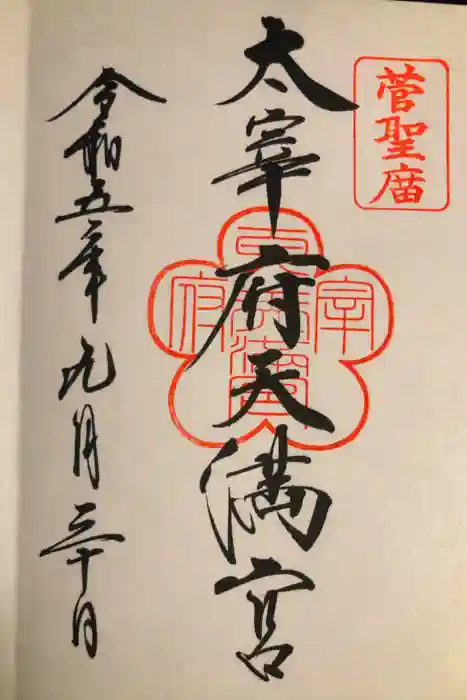 菅聖庿
太宰府天満宮
令和五年九月三十日